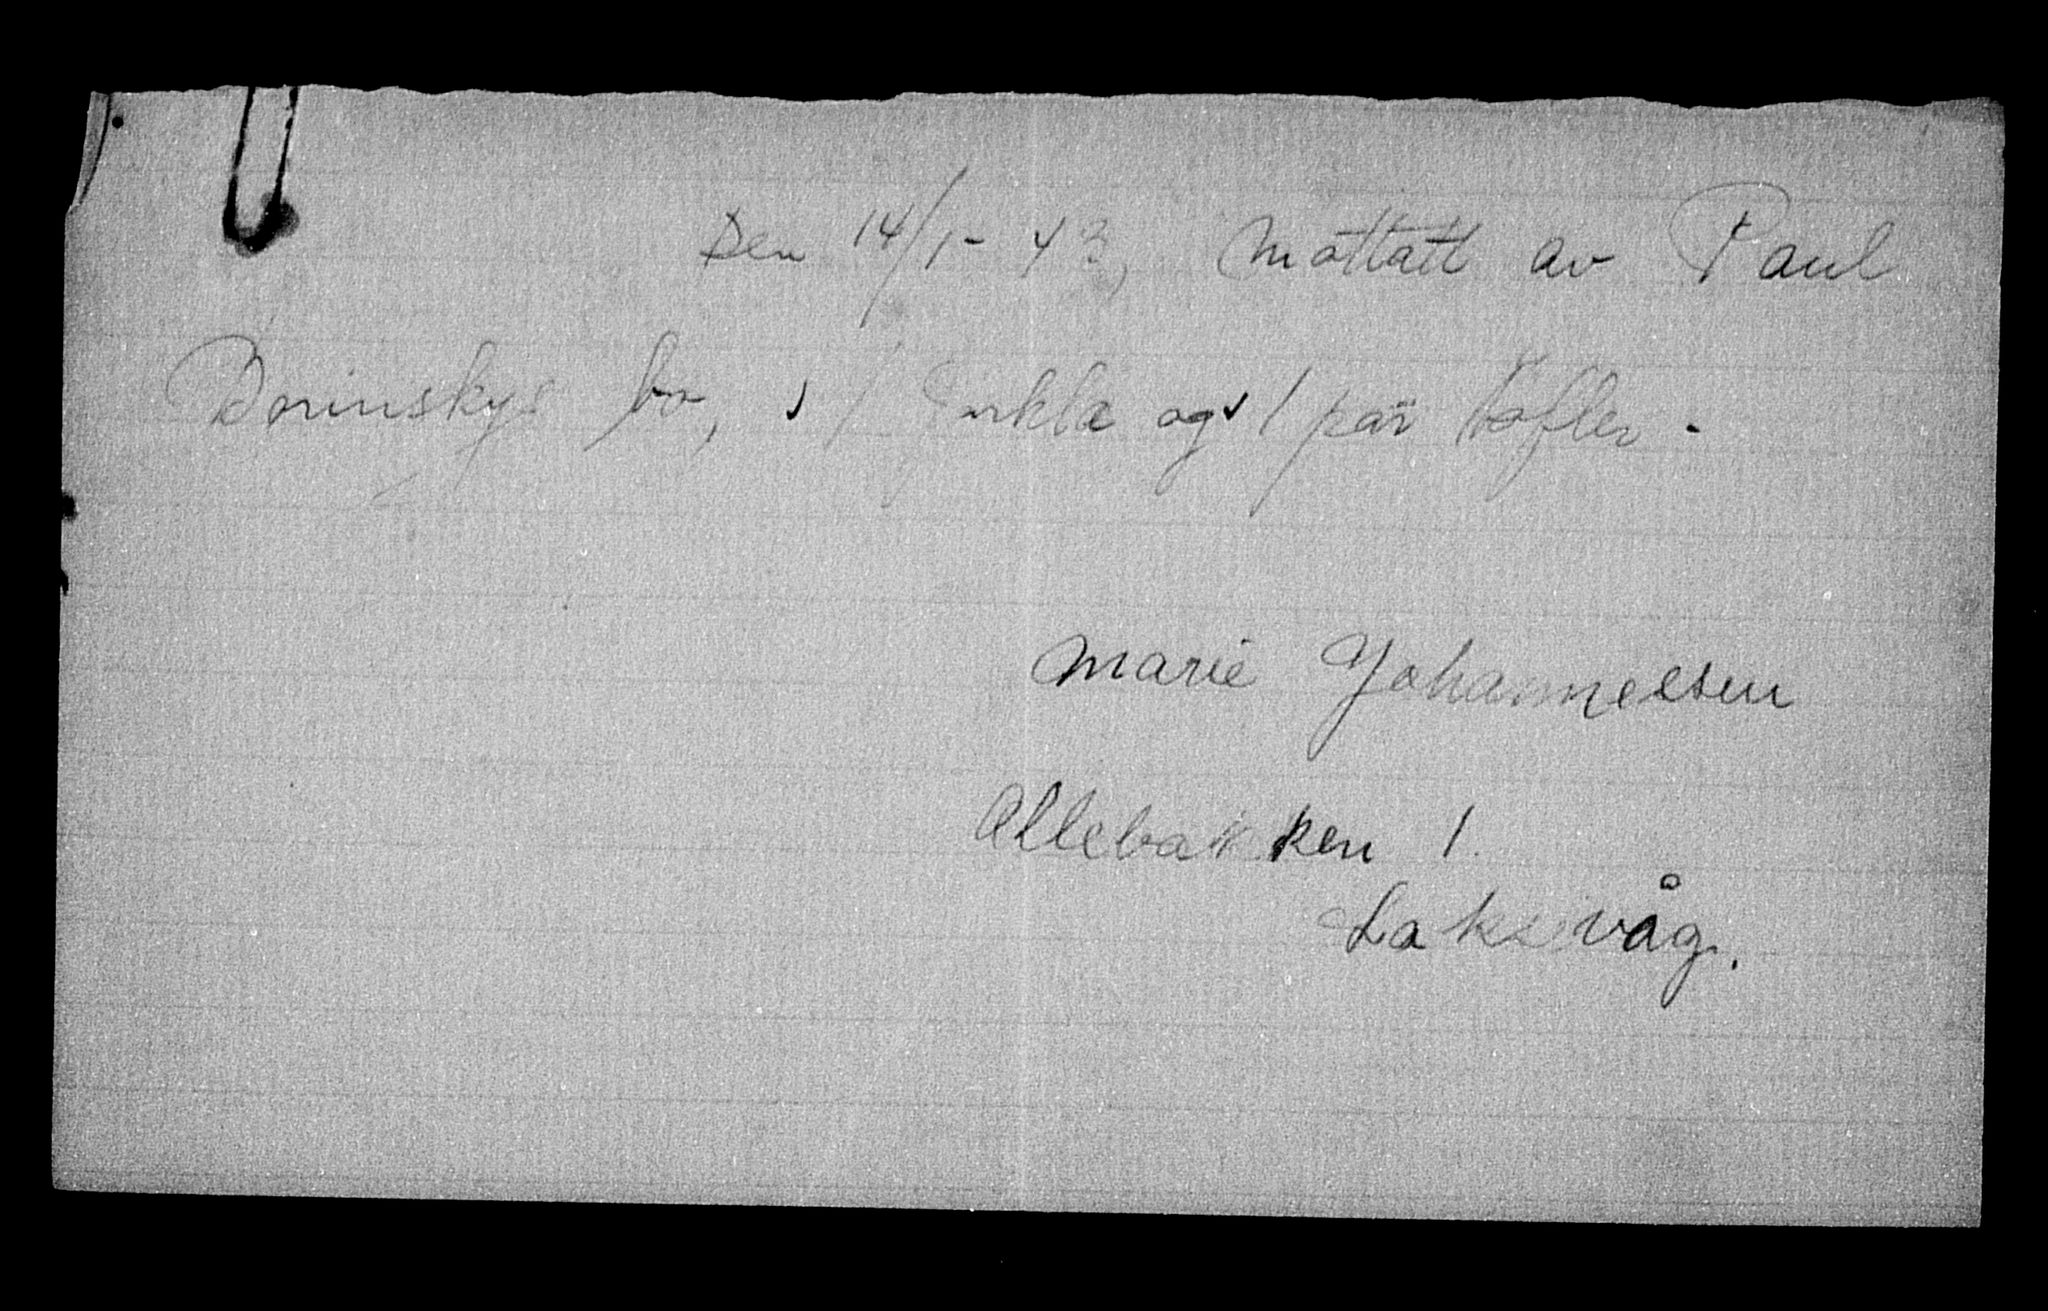 Den 14/1-43, Mottatt av Paul
Dorinskys bo, 1 og 1 par tøfler.
Marie Johannessen
Allebakken 1.
Laksevåg.